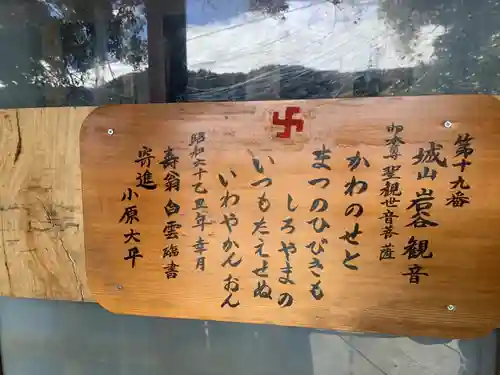 第十九番
城山 岩谷観音
御本尊 聖観世音菩薩
かわのせと
まつのひびきも
しろやまの
いつもたえせぬ
いわやかんおん
昭和六十乙丑年幸月
寿翁 白雲 臨書
寄進 小原大平